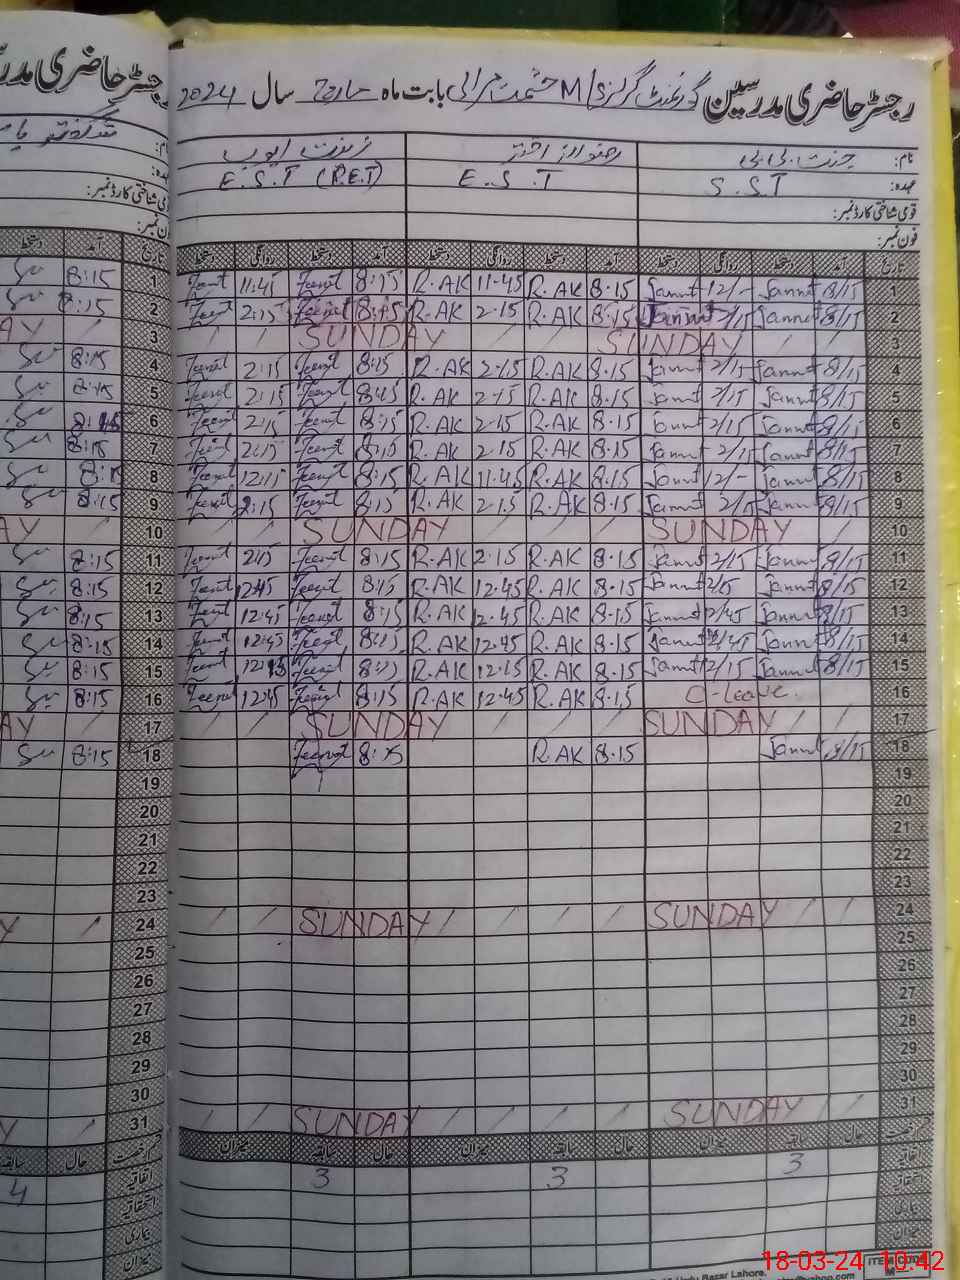 رجسٹر حاضری مدرسین گورنمنٹ گرلز M/S حشمت مرالی بابت ماہ مارچ سال 2024
نام: جنت بی بی رضوانہ اختر زینت ایوب
عہدہ: S.S.T E.S.T E.S.T (P.E.T)
قومی شناختی کارڈ نمبر:
فون نمبر:
تاریخ آمد دستخط روانگی دستخط آمد دستخط روانگی دستخط آمد دستخط روانگی دستخط
1 8/15 Jannat 12/- Jannat 8.15 R.AK 11.45 R.AK 8:15 Zeenat 11:45 Zeenat
2 8/15 Jannat 2/15 Jannat 8:15 R.AK 2.15 R.AK 8:15 Zeenat 2:15 Zeenat
3 SUNDAY SUNDAY
4 8/15 Jannat 2/15 Jannat 8.15 R.AK 2.15 R.AK 8:15 Zeenat 2:15 Zeenat
5 8/15 Jannat 2/15 Jannat 8.15 R.AK 2.15 R.AK 8:15 Zeenat 2:15 Zeenat
6 8/15 Jannat 2/15 Jannat 8.15 R.AK 2.15 R.AK 8:15 Zeenat 2:15 Zeenat
7 8/15 Jannat 2/15 Jannat 8.15 R.AK 2.15 R.AK 8:15 Zeenat 2:15 Zeenat
8 8/15 Jannat 12/- Jannat 8.15 R.AK 11.45 R.AK 8:15 Zeenat 12:15 Zeenat
9 8/15 Jannat 2/15 Jannat 8.15 R.AK 2.15 R.AK 8:15 Zeenat 2:15 Zeenat
10 SUNDAY SUNDAY
11 8/15 Jannat 2/15 Jannat 8.15 R.AK 2.15 R.AK 8:15 Zeenat 2:15 Zeenat
12 8/15 Jannat Jannat 8.15 R.AK 12.45 R.AK 8:15 Zeenat 12:45 Zeenat
13 8/15 Jannat 12/45 Jannat 8.15 R.AK 12.45 R.AK 8:15 Zeenat 12:45 Zeenat
14 8/15 Jannat Jannat 8.15 R.AK 12.45 R.AK 8:15 Zeenat 12:45 Zeenat
15 8/15 Jannat 12/15 Jannat 8.15 R.AK 12.15 R.AK 8:15 Zeenat Zeenat
16 C-Leave. 8.15 R.AK 12.45 R.AK 8:15 Zeenat 12:45 Zeenat
17 SUNDAY SUNDAY
18 8/15 Jannat 8.15 R.AK 8:15 Zeenat
19
20
21
22
23
24 SUNDAY SUNDAY
25
26
27
28
29
30
31 SUNDAY SUNDAY
رخصت حال سابقہ میزان حال سابقہ میزان حال سابقہ میزان
اتفاقیہ 3 3 3
استحقاقیہ
بیماری
میزان
رجسٹر حاضری مدر
تاریخ آمد دستخط
1 8:15
2 8:15
3
4 8:15
5 8:15
6 8:15
7 8:15
8 8:15
9 8:15
10
11 8:15
12 8:15
13 8:15
14 8:15
15 8:15
16 8:15
17
18 8:15
19
20
21
22
23
24
25
26
27
28
29
30
31
رخصت حال سابقہ
اتفاقیہ 4
استحقاقیہ
بیماری
میزان
Urdu Bazar Lahore.
ITEM CODE
18-03-24 10:42